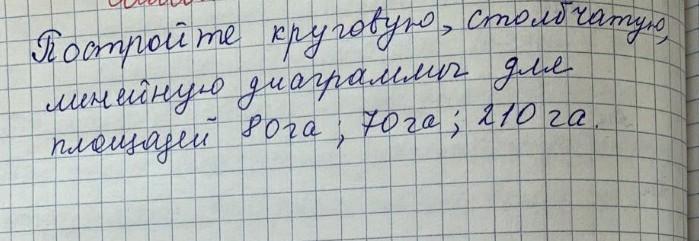 Постройте круговую, столбчатую,
линейную диаграммы для
площадей 80га; 70га; 210га.